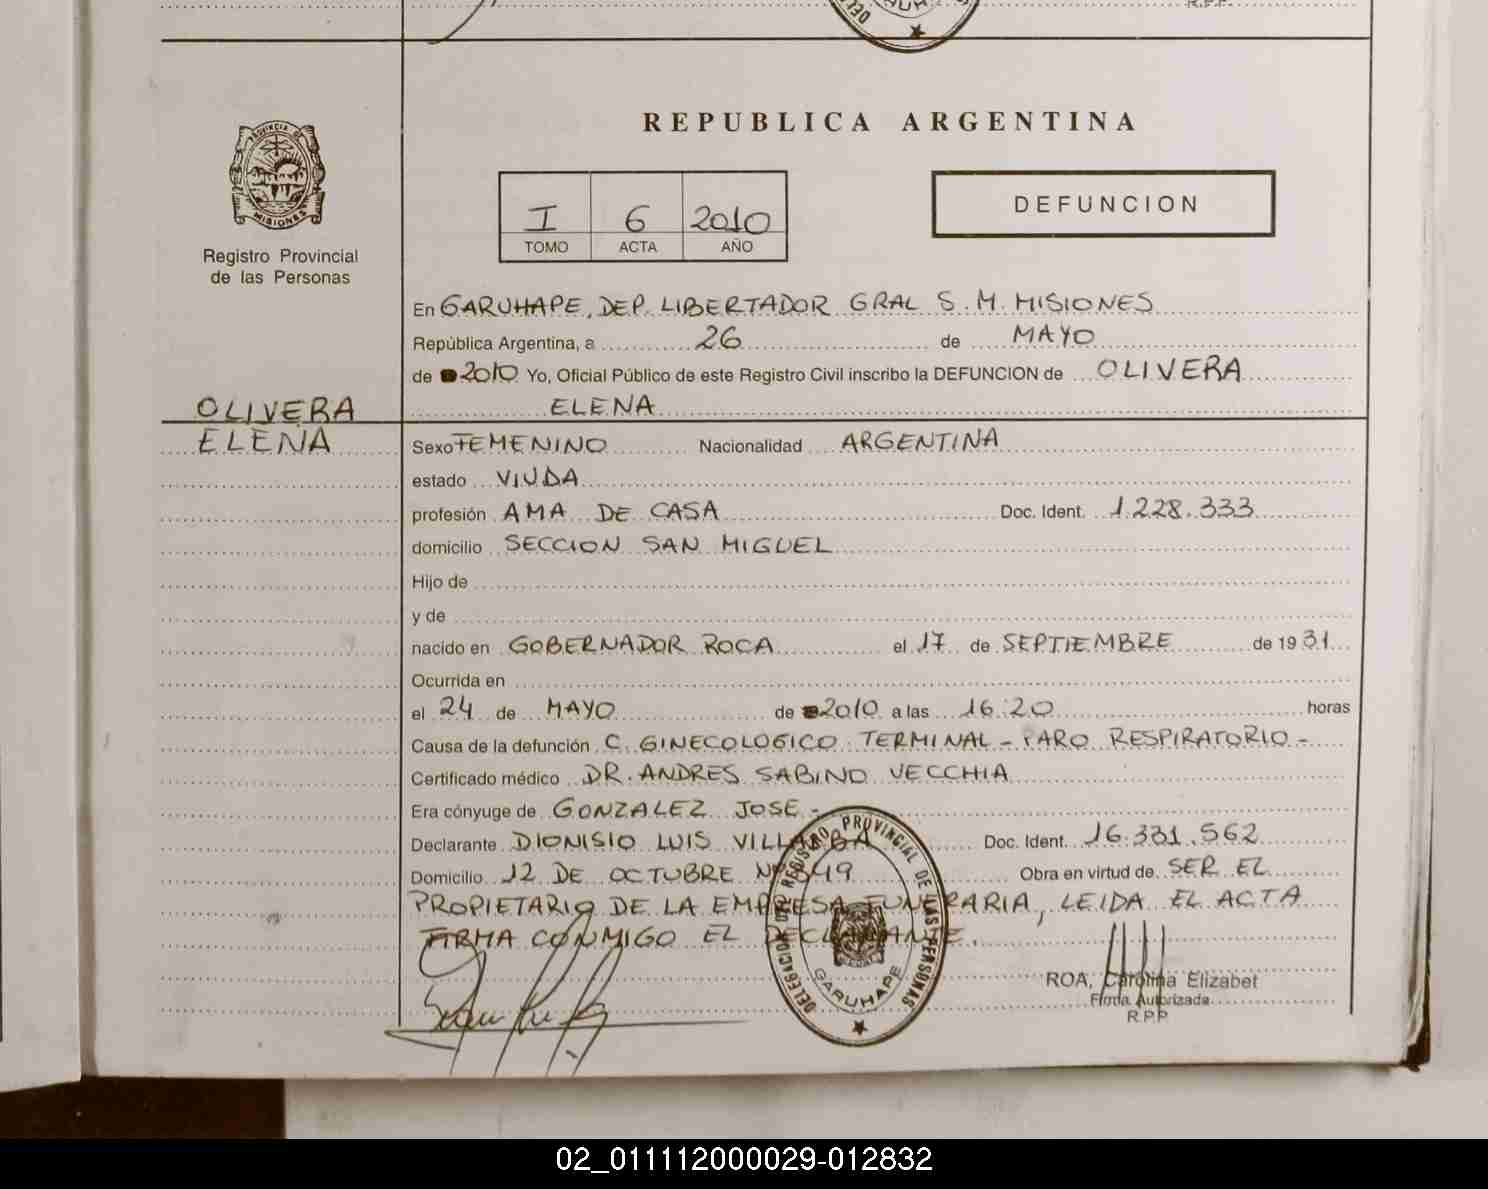 R.P.P.
REPUBLICA ARGENTINA
PROVINCIA DE
MISIONES
Registro Provincial
de las Personas
I 6 2010
TOMO ACTA AÑO
DEFUNCION
En GARUHAPE, DEP. LIBERTADOR GRAL S. M. MISIONES
República Argentina, a 26 de MAYO
de 2010 Yo, Oficial Público de este Registro Civil inscribo la DEFUNCION de OLIVERA
ELENA
OLIVERA
ELENA
Sexo FEMENINO Nacionalidad ARGENTINA
estado VIUDA
profesión AMA DE CASA Doc. Ident. 1.228.333
domicilio SECCION SAN MIGUEL
Hijo de
y de
nacido en GOBERNADOR ROCA el 17 de SEPTIEMBRE de 1931
Ocurrida en
el 24 de MAYO de 2010 a las 16:20 horas
Causa de la defunción C. GINECOLOGICO TERMINAL - PARO RESPIRATORIO -
Certificado médico DR. ANDRES SABINO VECCHIA
Era cónyuge de GONZALEZ JOSE -
Declarante DIONISIO LUIS VILLALBA Doc. Ident. 16.331.562
Domicilio 12 DE OCTUBRE Nº 349 Obra en virtud de SER EL
PROPIETARIO DE LA EMPRESA FUNERARIA, LEIDA EL ACTA
FIRMA CONMIGO EL DECLARANTE.
DELEGACION DEL REGISTRO PROVINCIAL DE LAS PERSONAS
GARUHAPE
ROA, Carolina Elizabet
Firma Autorizada
R.P.P.
02_011112000029-012832